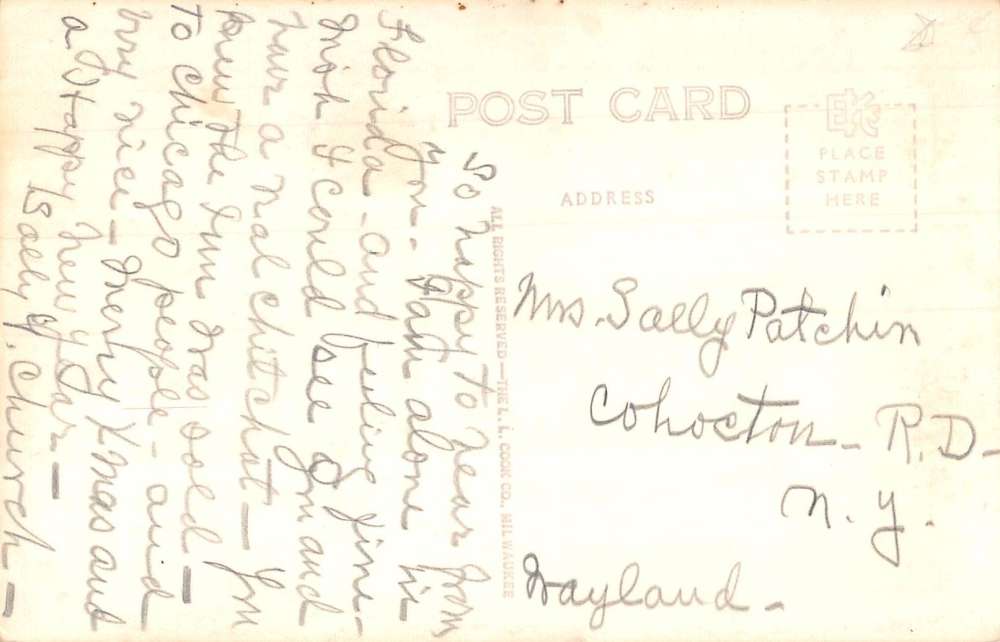 POST CARD
EKC
PLACE
STAMP
HERE
ADDRESS
ALL RIGHTS RESERVED—THE L. L. COOK CO., MILWAUKEE
So happy to hear from
you. I am alone in
Florida - and feeling fine -
Wish I could see you and
have a real chitchat - You
knew the Inn was sold -
to Chicago people - and
very nice - Merry Xmas and
a Happy New Year -
Sally Church -
Mrs. Sally Patchin
Cohocton - R.D. -
N. Y.
Wayland -